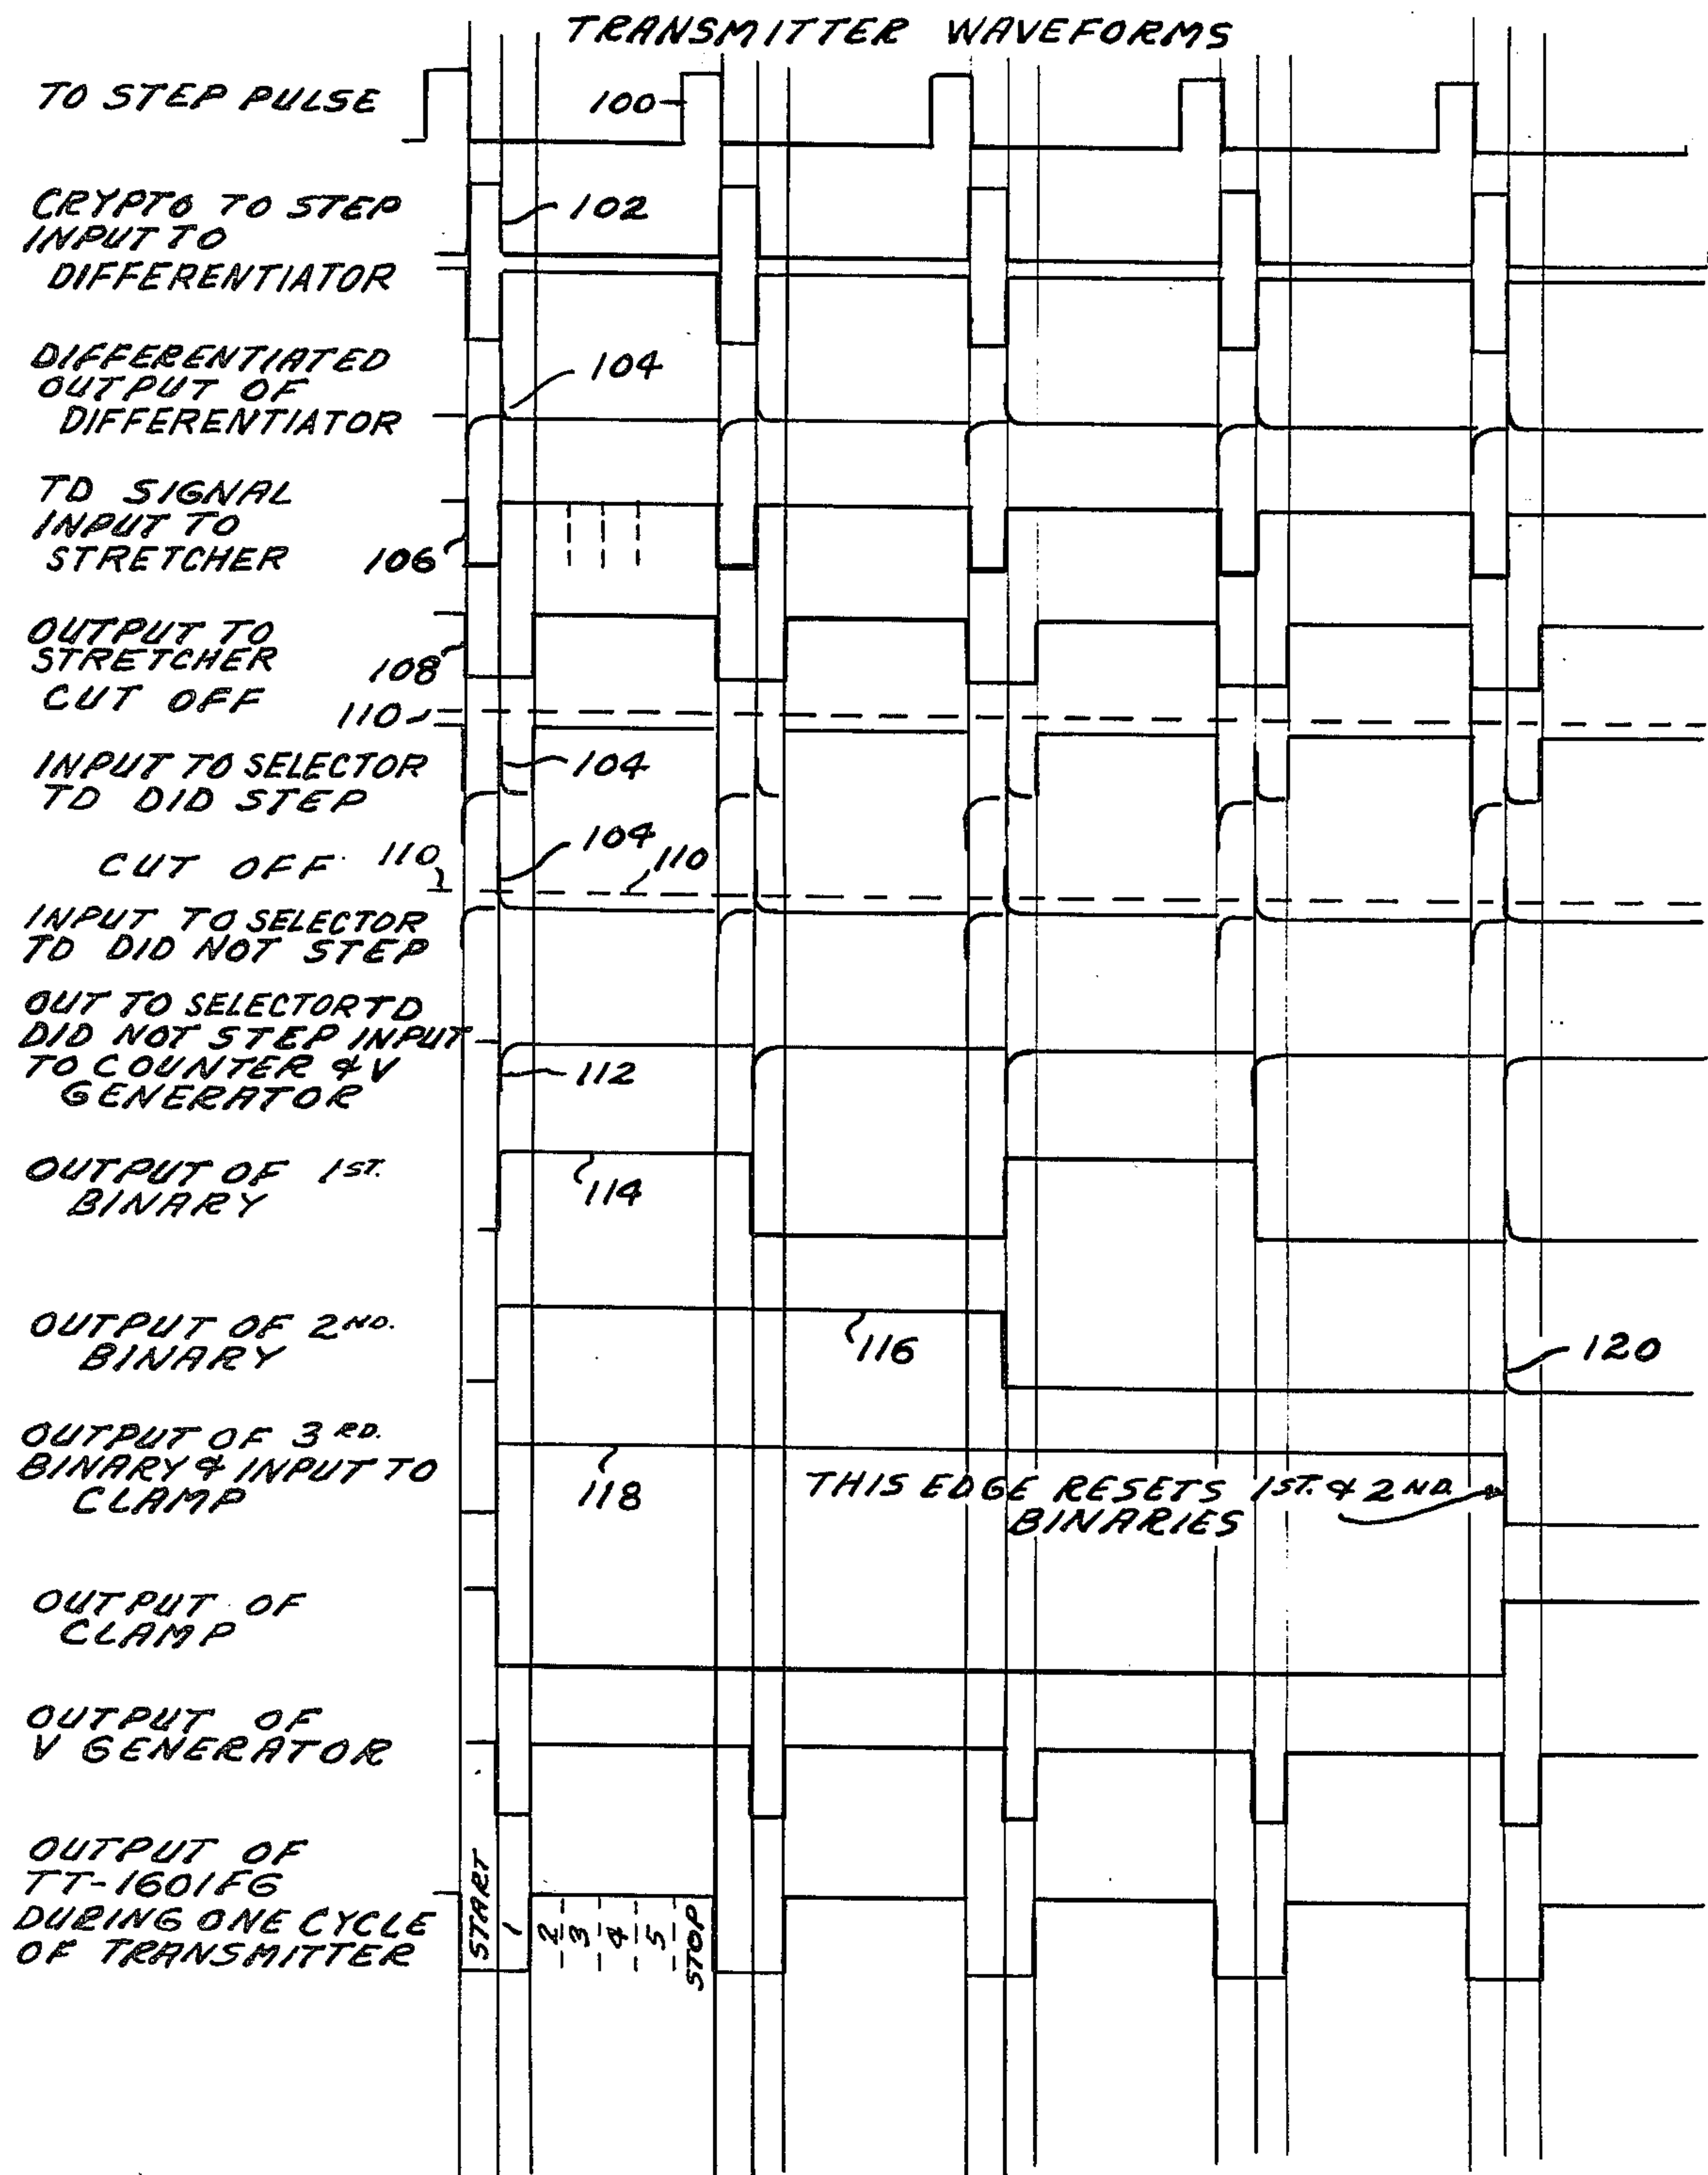 TRANSMITTER WAVEFORMS
TO STEP PULSE
100
CRYPTO TO STEP
INPUT TO
DIFFERENTIATOR
102
DIFFERENTIATED
OUTPUT OF
DIFFERENTIATOR
104
TD SIGNAL
INPUT TO
STRETCHER
106
OUTPUT TO
STRETCHER
108
CUT OFF
110
INPUT TO SELECTOR
TD DID STEP
104
104
CUT OFF 110
110
INPUT TO SELECTOR
TD DID NOT STEP
OUT TO SELECTOR TD
DID NOT STEP INPUT
TO COUNTER & V
GENERATOR
112
OUTPUT OF 1ST.
BINARY
114
OUTPUT OF 2ND.
BINARY
116
120
OUTPUT OF 3RD.
BINARY & INPUT TO
CLAMP
118
THIS EDGE RESETS 1ST. & 2ND.
BINARIES
OUTPUT OF
CLAMP
OUTPUT OF
V GENERATOR
OUTPUT OF
TT-160/FG
DURING ONE CYCLE
OF TRANSMITTER
START
1
2
3
4
5
STOP